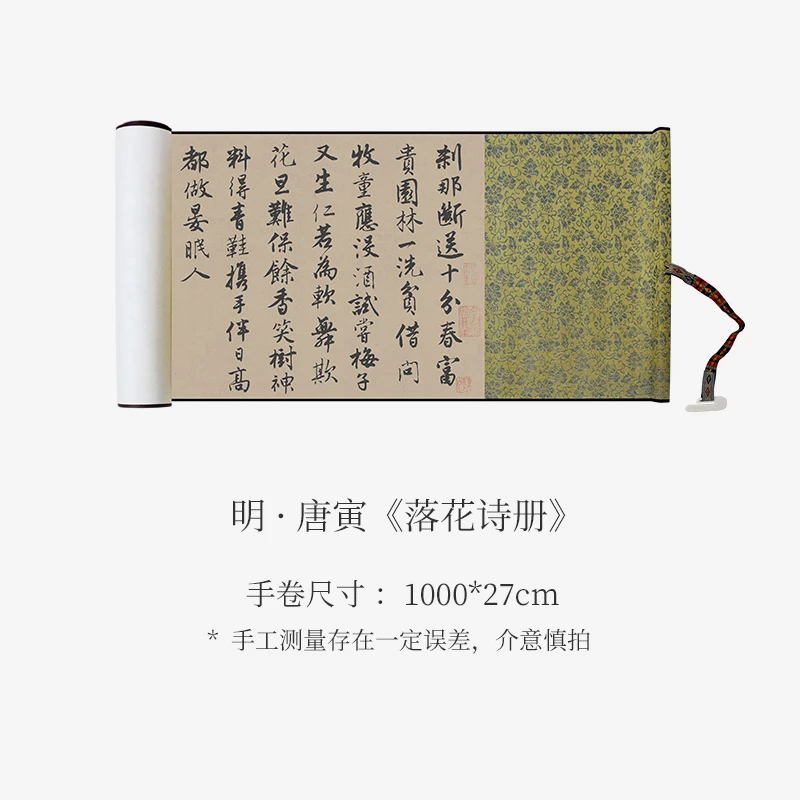 刹那斷送十分春富
貴園林一洗貧借问
牧童應没酒試嘗梅子
又生仁若為軟舞欺
花旦難保餘香笑樹神
料得青鞋携手伴日高
都做晏眠人
明·唐寅《落花诗册》
手卷尺寸：1000*27cm
* 手工测量存在一定误差，介意慎拍